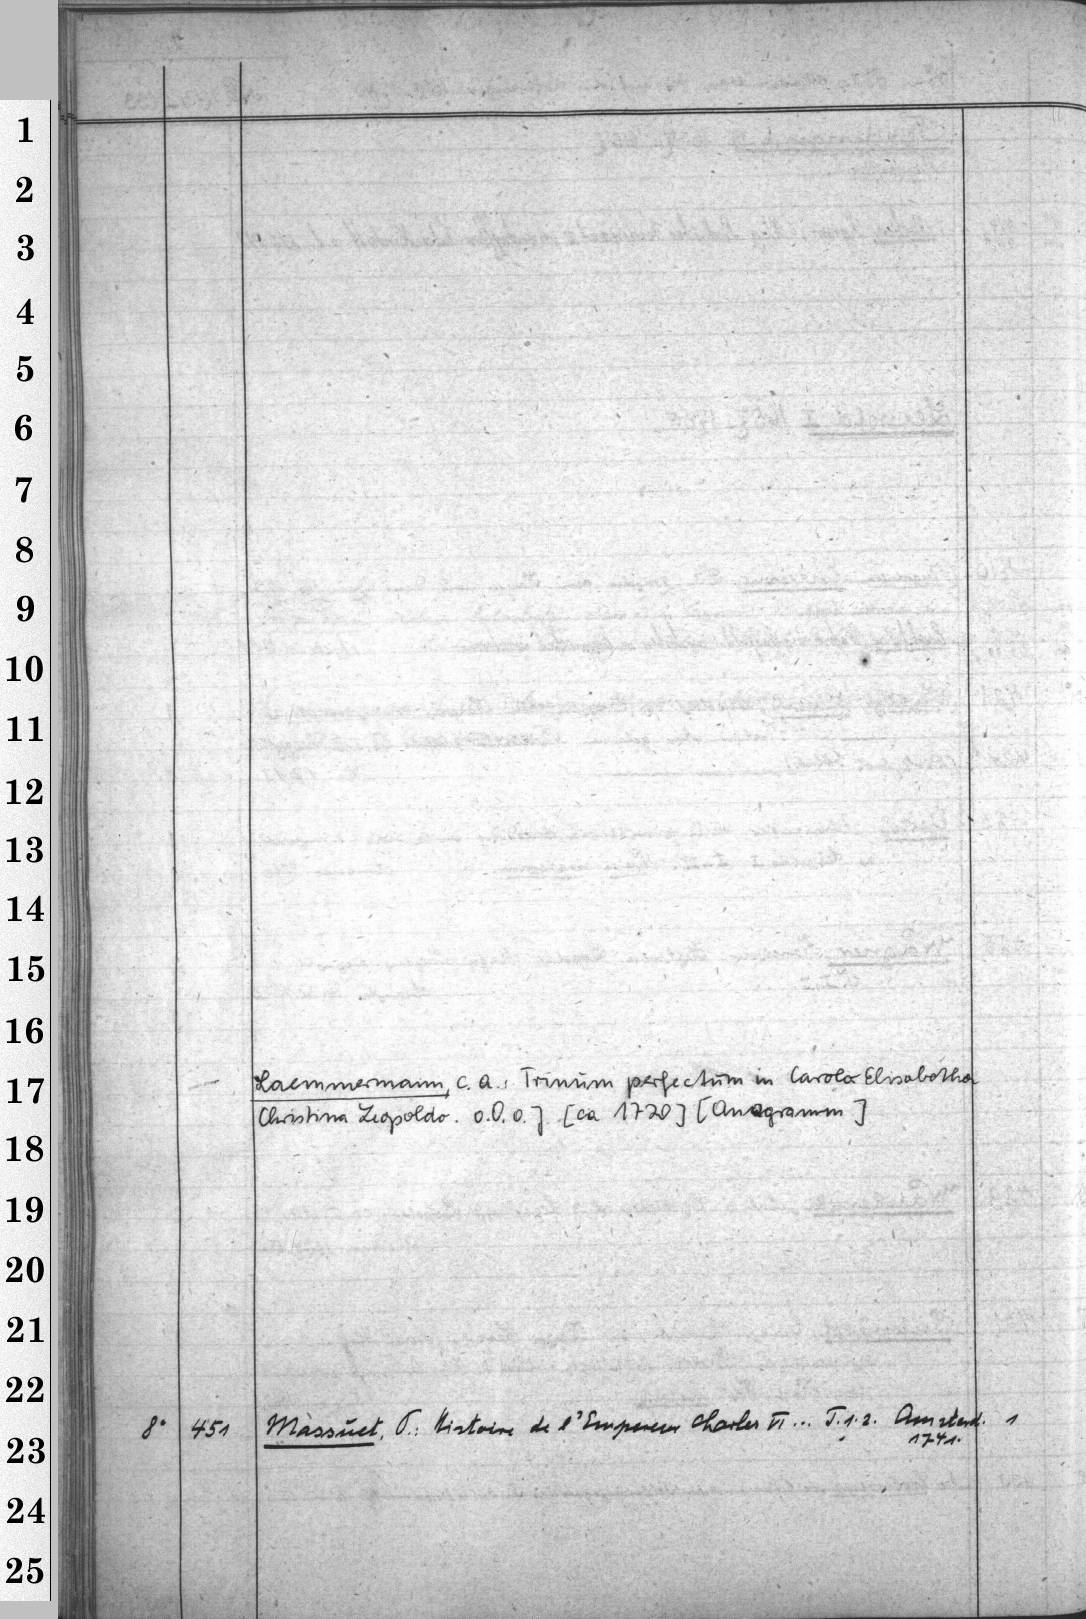 1
2
3
4
5
6
7
8
9
10
11
12
13
14
15
16
17
— Laemmermann, C. A.: Trinum perfectum in Carola Elisabetha
Christina Leopoldo. o.O. o.J. [ca 1720] [Anagramm]
18
19
20
21
22
8° 451 Massuet, P.: Histoire de l'Empereur Charles VI... T.1.2. Amsterd. 1
1741.
23
24
25